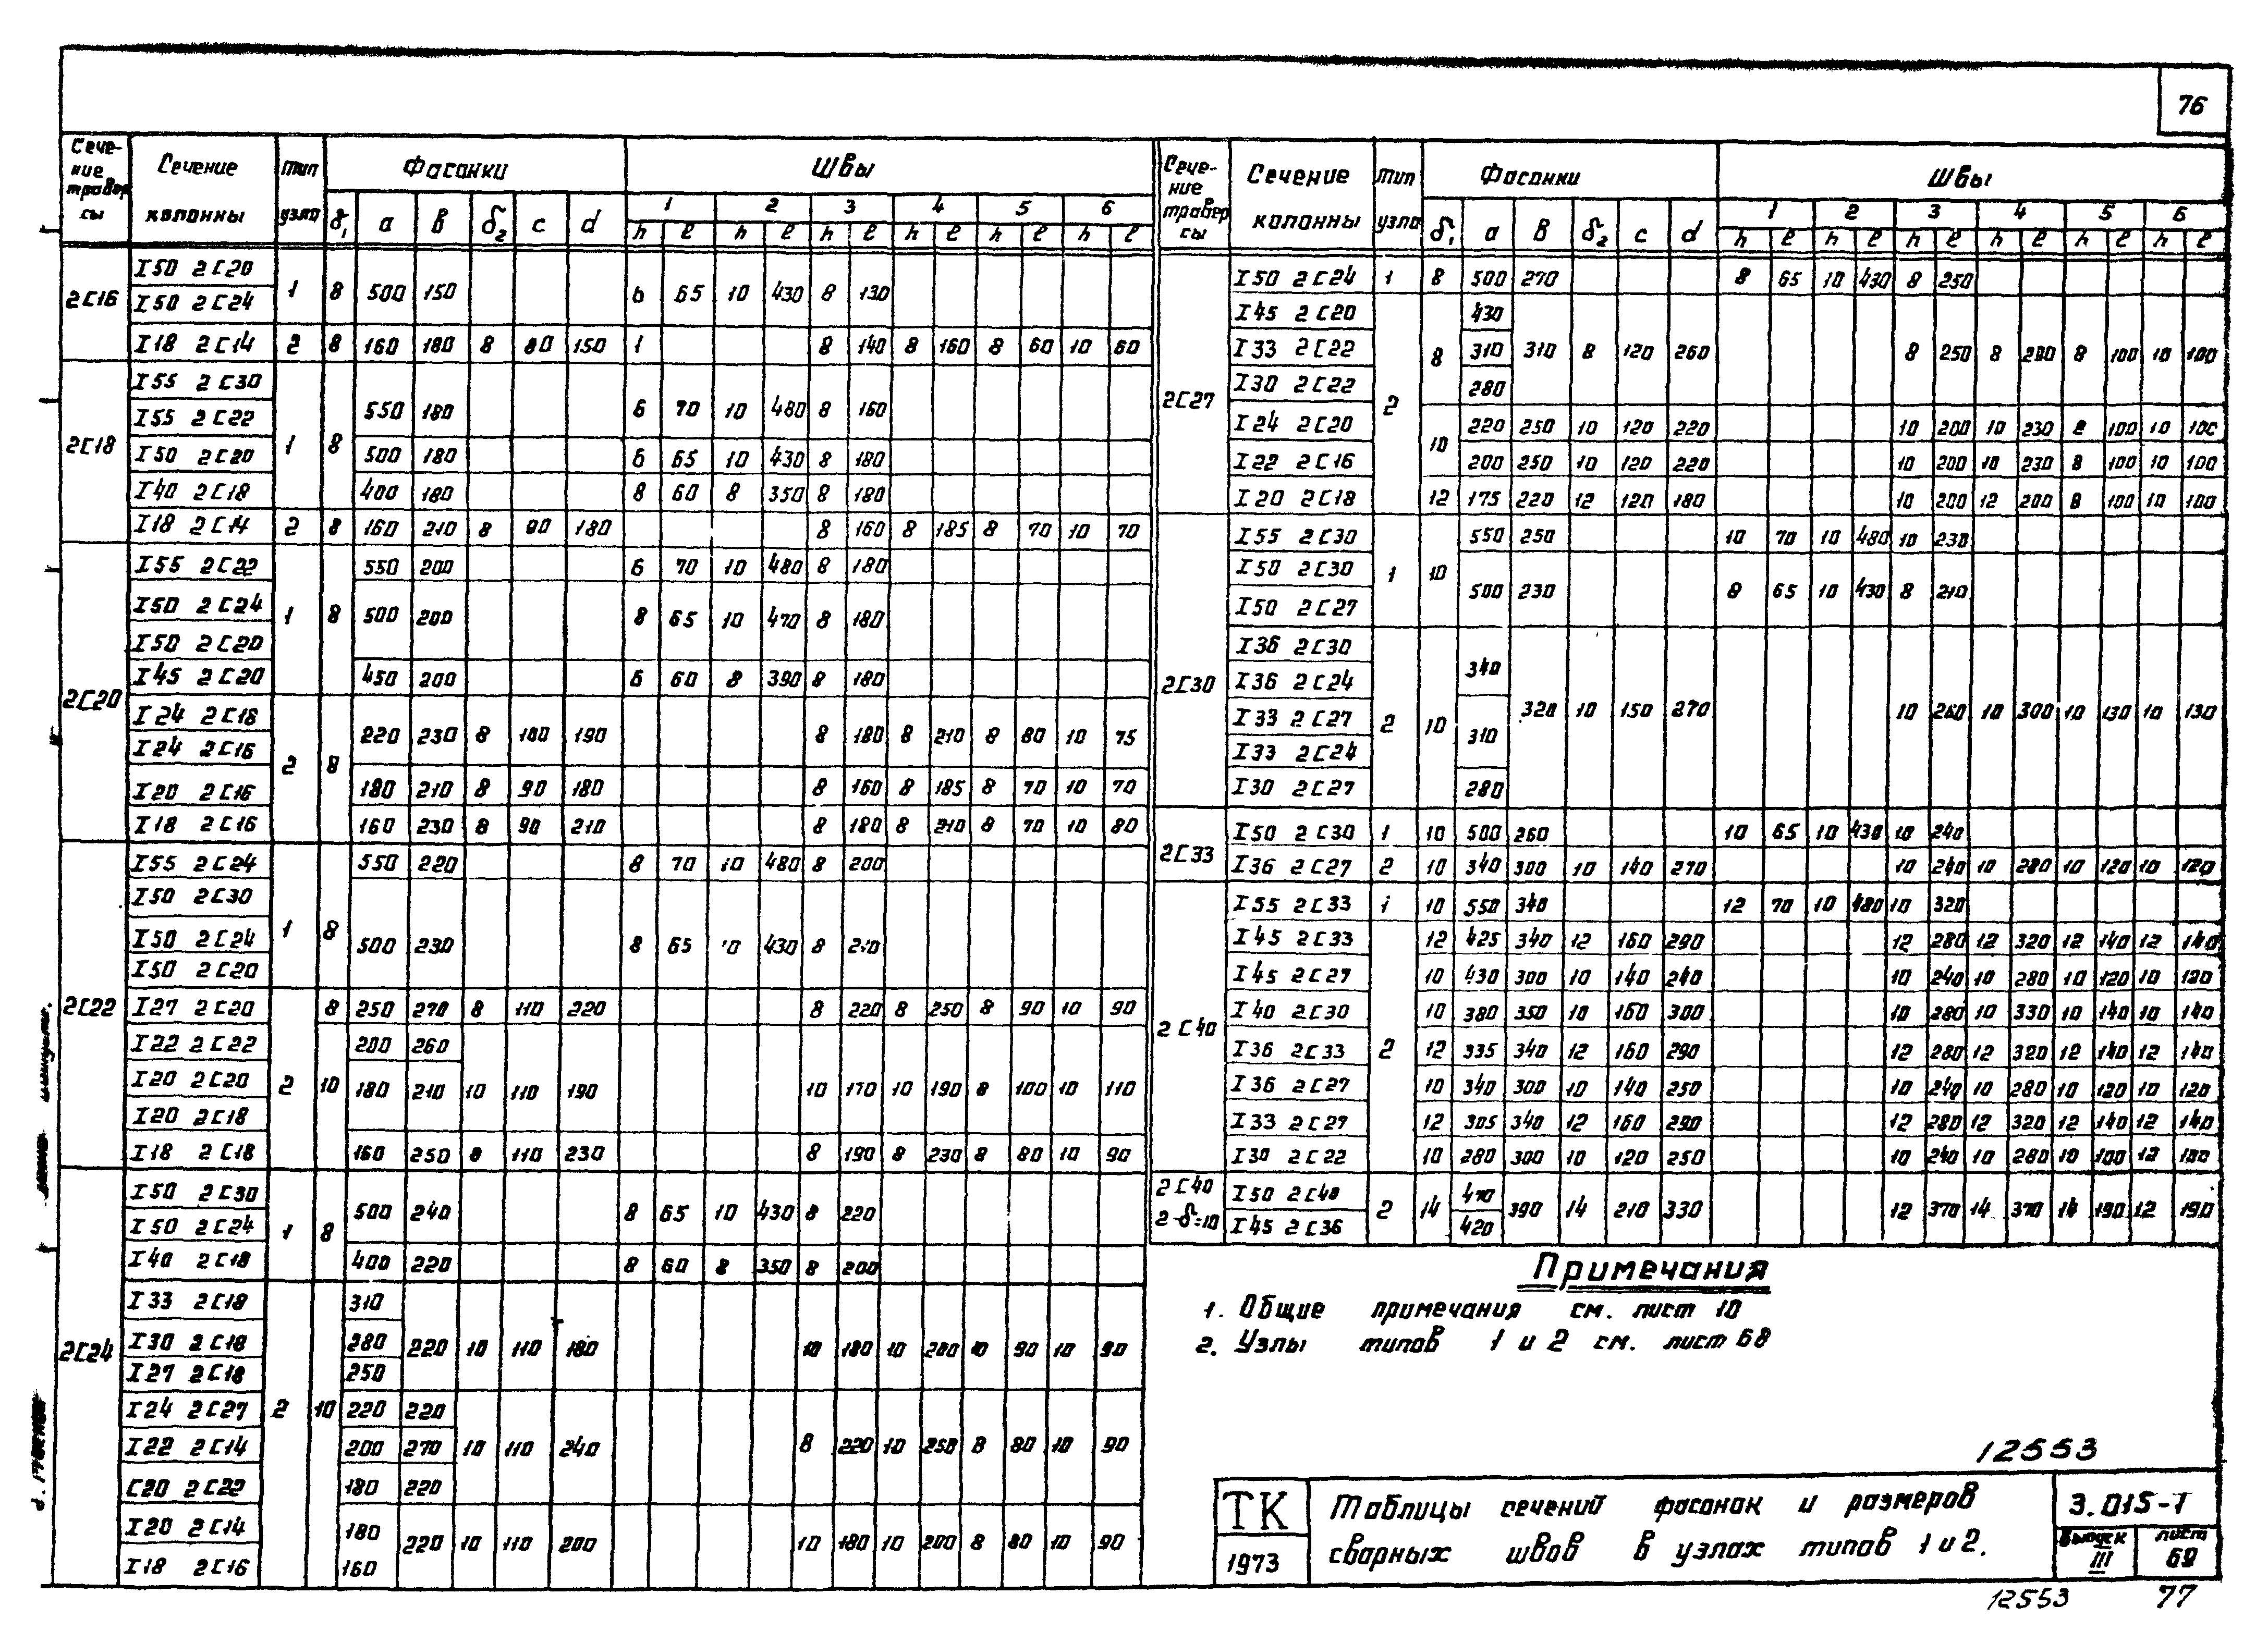 76
Сечение траверсы Сечение колонны Тип узла Фасонки Швы
δ1 а в δ2 с d 1 2 3 4 5 6
h ℓ h ℓ h ℓ h ℓ h ℓ h ℓ
2С16
I50 2С20 1 8 500 150 6 65 10 430 8 130
I50 2С24
I18 2С14 2 8 160 180 8 80 150 8 140 8 160 8 60 10 60
2С18
I55 2С30 1 8 550 180 6 70 10 480 8 160
I55 2С22
I50 2С20 500 180 6 65 10 430 8 180
I40 2С18 400 180 8 60 8 350 8 180
I18 2С14 2 8 160 210 8 90 180 8 160 8 185 8 70 10 70
2С20
I55 2С22 1 8 550 200 6 70 10 480 8 180
I50 2С24 500 200 8 65 10 470 8 180
I50 2С20
I45 2С20 450 200 6 60 8 390 8 180
I24 2С18 2 8 220 230 8 100 190 8 180 8 210 8 80 10 75
I24 2С16
I20 2С16 180 210 8 90 180 8 160 8 185 8 70 10 70
I18 2С16 160 230 8 90 210 8 180 8 210 8 70 10 80
2С22
I55 2С24 1 8 550 220 8 70 10 480 8 200
I50 2С30
I50 2С24 500 230 8 65 10 430 8 210
I50 2С20
I27 2С20 2 8 250 270 8 110 220 8 220 8 250 8 90 10 90
I22 2С22 10 200 260
I20 2С20 180 210 10 110 190 10 170 10 190 8 100 10 110
I20 2С18
I18 2С18 160 250 8 110 230 8 190 8 230 8 80 10 90
2С24
I50 2С30 1 8 500 240 8 65 10 430 8 220
I50 2С24
I40 2С18 400 220 8 60 8 350 8 200
I33 2С18 2 10 310
I30 2С18 280 220 10 110 180 10 180 10 200 10 90 10 90
I27 2С18 250
I24 2С27 220 220
I22 2С14 200 270 10 110 240 8 220 10 250 8 80 10 90
С20 2С22 180 220
I20 2С14 180 220 10 110 200 10 180 10 200 8 80 10 90
I18 2С16 160
Сечение траверсы Сечение колонны Тип узла Фасонки Швы
δ1 а в δ2 с d 1 2 3 4 5 6
h ℓ h ℓ h ℓ h ℓ h ℓ h ℓ
2С27
I50 2С24 1 8 500 270 8 65 10 430 8 250
I45 2С20 2 8 430
I33 2С22 310 310 8 120 260 8 250 8 290 8 100 10 100
I30 2С22 280
I24 2С20 10 220 250 10 120 220 10 200 10 230 8 100 10 100
I22 2С16 200 250 10 120 220 10 200 10 230 8 100 10 100
I20 2С18 12 175 220 12 120 180 10 200 12 200 8 100 10 100
2С30
I55 2С30 1 10 550 250 10 70 10 480 10 230
I50 2С30 500 230 8 65 10 430 8 210
I50 2С27
I36 2С30 2 10 340 320 10 150 270 10 260 10 300 10 130 10 130
I36 2С24
I33 2С27 310
I33 2С24
I30 2С27 280
2С33
I50 2С30 1 10 500 260 10 65 10 430 10 240
I36 2С27 2 10 340 300 10 140 270 10 240 10 280 10 120 10 120
2С40
I55 2С33 1 10 550 340 12 70 10 480 10 320
I45 2С33 2 12 425 340 12 160 290 12 280 12 320 12 140 12 140
I45 2С27 10 430 300 10 140 240 10 240 10 280 10 120 10 120
I40 2С30 10 380 350 10 160 300 10 280 10 330 10 140 10 140
I36 2С33 12 335 340 12 160 290 12 280 12 320 12 140 12 140
I36 2С27 10 340 300 10 140 250 10 240 10 280 10 120 10 120
I33 2С27 12 305 340 12 160 290 12 280 12 320 12 140 12 140
I30 2С22 10 280 300 10 120 250 10 240 10 280 10 100 12 100
2С40 2-δ=10
I50 2С40 2 14 470 390 14 210 330 12 370 14 370 14 190 12 190
I45 2С36 420
Примечания
1. Общие примечания см. лист 10
2. Узлы типов 1 и 2 см. лист 68
12553
ТК
1973
Таблицы сечений фасонак и размеров
сварных швов в узлах типов 1 и 2.
3.015-1
выпуск III
лист 69
12553 77